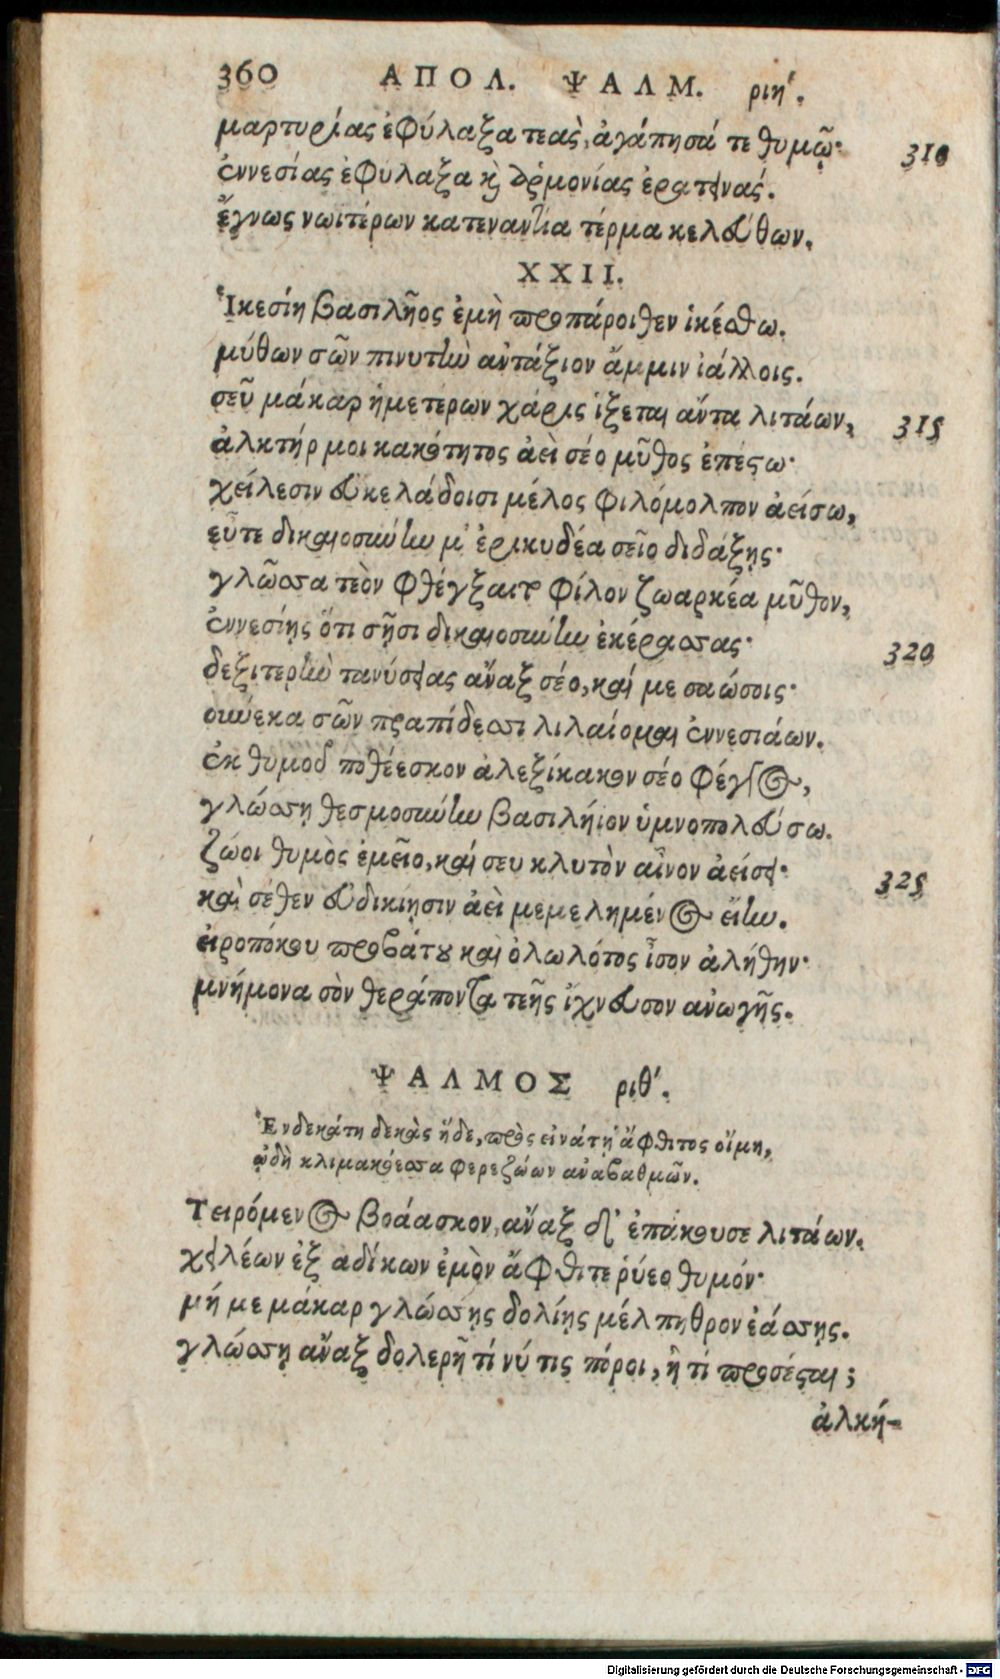 360 ΑΠΟΛ. ΨΑΛΜ. ριηʹ.
μαρτυρίας ἐφύλαξα τεὰς, ἀγάπησά τε θυμῷ· 310
ἐννεσίας ἐφυλαξα καὶ ἁρμονίας ἐρατεινάς.
ἔγνως νωιτέρων κατεναντία τέρμα κελεύθων.
XXII.
Ἱκεσίη βασιλῆος ἐμὴ προπάροιθεν ἱκέσθω.
μύθων σῶν πινυτὴν ἀντάξιον ἄμμιν ἰάλλοις.
σεῦ μάκαρ ἡμετέρων χάρις ἵξεται ἄντα λιτάων, 315
ἀλκτήρ μοι κακότητος ἀεὶ σέο μῦθος ἐπέστω·
χείλεσιν εὐκελάδοισι μέλος φιλόμολπον ἀείσω,
εὖτε δικαιοσύνην μ' ἐρικυδέα σεῖο διδάξῃς·
γλῶσσα τεὸν φθέγξαιτο φίλον ζωαρκέα μῦθον,
ἐννεσίῃς ὅτι σῇσι δικαιοσύνην ἐκέρασσας· 320
δεξιτερὴν τανύσειας ἄναξ σέο, καί με σαώσοις·
οὕνεκα σῶν πραπίδεσσι λιλαίομαι ἐννεσιάων.
ἐκ θυμοῦ ποθέεσκον ἀλεξίκακον σέο φέγγος,
γλώσσῃ θεσμοσύνην βασιλήϊον ὑμνοπολεύσω.
ζώοι θυμὸς ἐμεῖο, καί σευ κλυτὸν αἶνον ἀείσει· 325
καὶ σέθεν εὐδικίῃσιν ἀεὶ μεμελημένος εἴην.
εἰροπόκου προβάτου καὶ ὀλωλότος ἶσον ἀλήθην·
μνήμονα σὸν θεράποντα τεῆς ἴχνευσον ἀνωγῆς.
ΨΑΛΜΟΣ ριθʹ.
Ἑνδεκάτη δεκὰς ἥδε, πρὸς εἰνάτῃ ἄφθιτος οἴμη,
ᾠδὴ κλιμακόεσσα φερεζώων ἀναβαθμῶν.
Τειρόμενος βοάασκον, ἄναξ δ' ἐπάκουσε λιτάων.
χειλέων ἐξ ἀδίκων ἐμὸν ἄφθιτε ῥύεο θυμόν·
μή με μάκαρ γλώσσης δολίης μέλπηθρον ἐάσσῃς.
γλώσσῃ ἄναξ δολερῇ τί νύ τις πόροι, ἢ τί προσέσται;
ἀλκή-
Digitalisierung gefördert durch die Deutsche Forschungsgemeinschaft - DFG